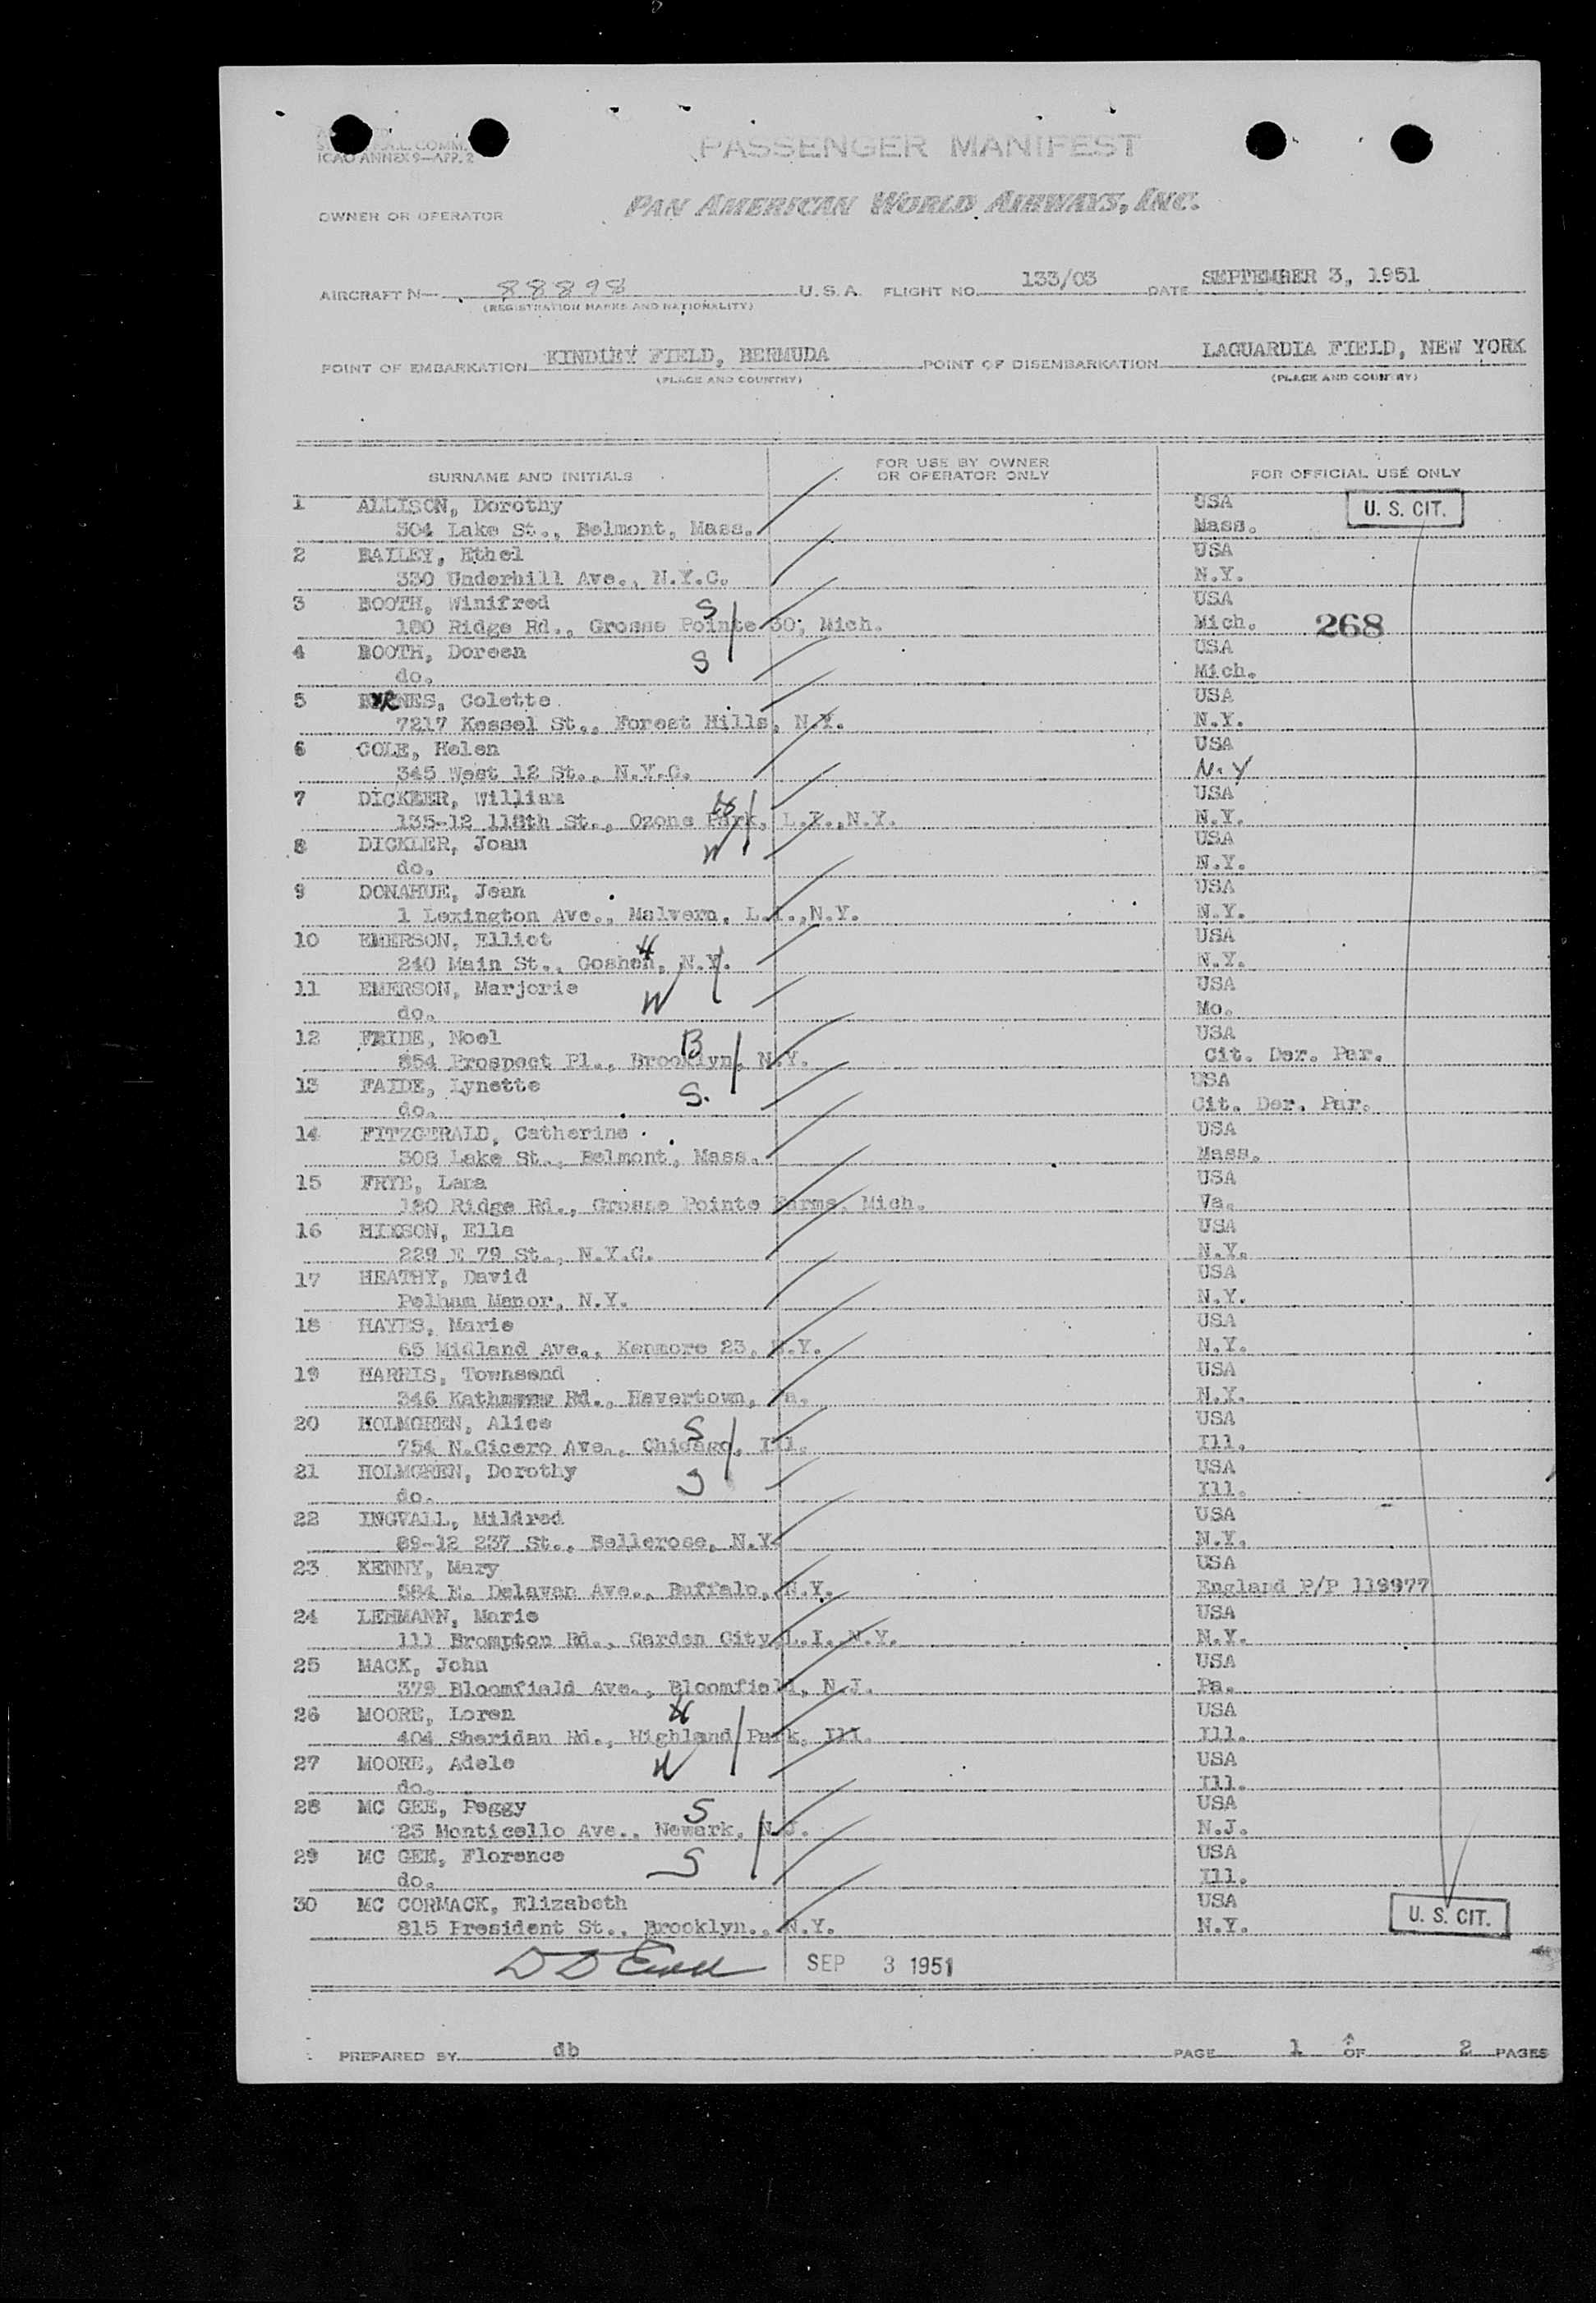 ICAO ANNEX 9—APP. 2
PASSENGER MANIFEST
OWNER OR OPERATOR PAN AMERICAN WORLD AIRWAYS, INC.
AIRCRAFT N— 88898 U. S. A. FLIGHT NO. 133/03 DATE SEPTEMBER 3, 1951
(REGISTRATION MARKS AND NATIONALITY)
POINT OF EMBARKATION KINDLEY FIELD, BERMUDA POINT OF DISEMBARKATION LAGUARDIA FIELD, NEW YORK
(PLACE AND COUNTRY) (PLACE AND COUNTRY)
SURNAME AND INITIALS FOR USE BY OWNER OR OPERATOR ONLY FOR OFFICIAL USE ONLY
1 ALLISON, Dorothy USA U. S. CIT.
304 Lake St., Belmont, Mass. Mass.
2 BAILEY, Ethel USA
330 Underhill Ave., N.Y.C. N.Y.
3 BOOTH, Winifred S USA
180 Ridge Rd., Grosse Pointe 30, Mich. Mich. 268
4 BOOTH, Doreen S USA
do. Mich.
5 BYRNES, Colette USA
7217 Kessel St., Forest Hills, N.Y. N.Y.
6 COLE, Helen USA
345 West 12 St., N.Y.C. N.Y
7 DICKLER, William H USA
135-12 118th St., Ozone Park, L.I.,N.Y. N.Y.
8 DICKLER, Joan W USA
do. N.Y.
9 DONAHUE, Jean USA
1 Lexington Ave., Malvern, L.I.,N.Y. N.Y.
10 EMERSON, Elliot H USA
240 Main St., Goshen, N.Y. N.Y.
11 EMERSON, Marjorie W USA
do. Mo.
12 FAIDE, Noel B USA
854 Prospect Pl., Brooklyn, N.Y. Cit. Der. Par.
13 FAIDE, Lynette S. USA
do. Cit. Der. Par.
14 FITZGERALD, Catherine USA
308 Lake St., Belmont, Mass. Mass.
15 FRYE, Lana USA
180 Ridge Rd., Grosse Pointe Farms, Mich. Va.
16 HIXSON, Ella USA
229 E 79 St., N.Y.C. N.Y.
17 HEATHY, David USA
Pelham Manor, N.Y. N.Y.
18 HAYES, Marie USA
65 Midland Ave., Kenmore 23, N.Y. N.Y.
19 HARRIS, Townsend USA
346 Rd., Havertown, Pa. N.Y.
20 HOLMGREN, Alice S USA
754 N.Cicero Ave., Chicago, Ill. Ill.
21 HOLMGREN, Dorothy S USA
do. Ill.
22 INGVALL, Mildred USA
89-12 237 St., Bellerose, N.Y. N.Y.
23 KENNY, Mary USA
584 E. Delavan Ave., Buffalo, N.Y. England P/P 119977
24 LEHMANN, Marie USA
111 Brompton Rd., Garden City,L.I. N.Y. N.Y.
25 MACK, John USA
379 Bloomfield Ave., Bloomfield, N.J. Pa.
26 MOORE, Loren H USA
404 Sheridan Rd., Highland Park, Ill. Ill.
27 MOORE, Adele W USA
do. Ill.
28 MC GEE, Peggy S USA
25 Monticello Ave., Newark, N.J. N.J.
29 MC GEE, Florence S USA
do. Ill.
30 MC CORMACK, Elizabeth USA
815 President St., Brooklyn., N.Y. N.Y. U. S. CIT.
SEP 3 1951
PREPARED BY db PAGE 1 OF 2 PAGES